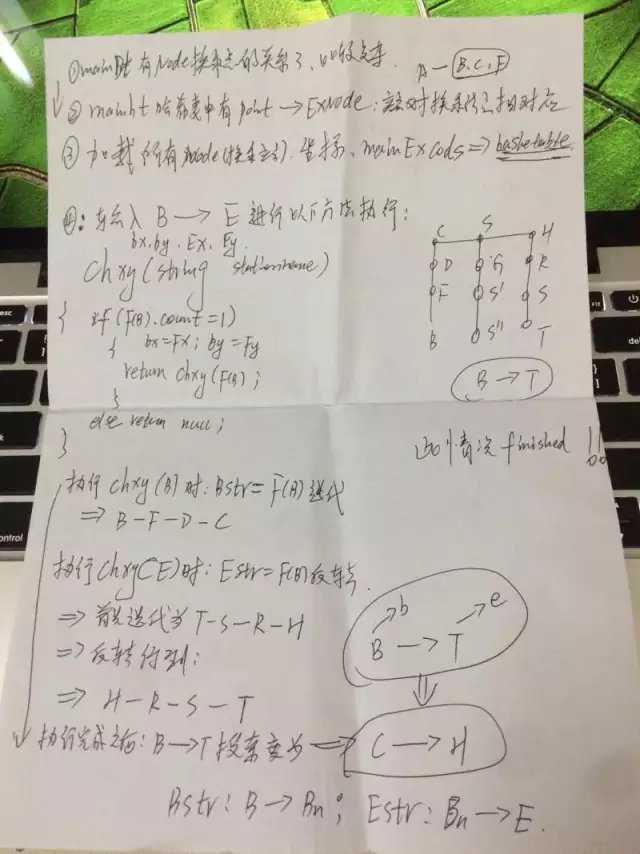 ① main时有Node换乘点的关系了、
A — B.C.F
② mainht 哈希表中有 point → ExNode:
③ 加载所有Node(换乘站)坐标、mainExcods => hashtable
④: 输入 B → E 进行以下方法执行:
bx,by. Ex, Ey.
chxy(string stationname)
{ if (F(B).count=1)
{ bx=Fx; by=Fy
return chxy(F(B);
}
else return null;
}
C S H
D G R
F S' S
B S'' T
B → T
此情况 finished !!
执行 chxy(B)时: Bstr= F(B)迭代
=> B-F-D-C
执行chxy(E)时: Estr=F(B)反转
=> 首先迭代为 T-S-R-H
=> 反转得到:
=> H-R-S-T
b e
B → T
执行完成之后: B→T 搜索变为 => C → H
Bstr: B → Bn; Estr: Bn → E.